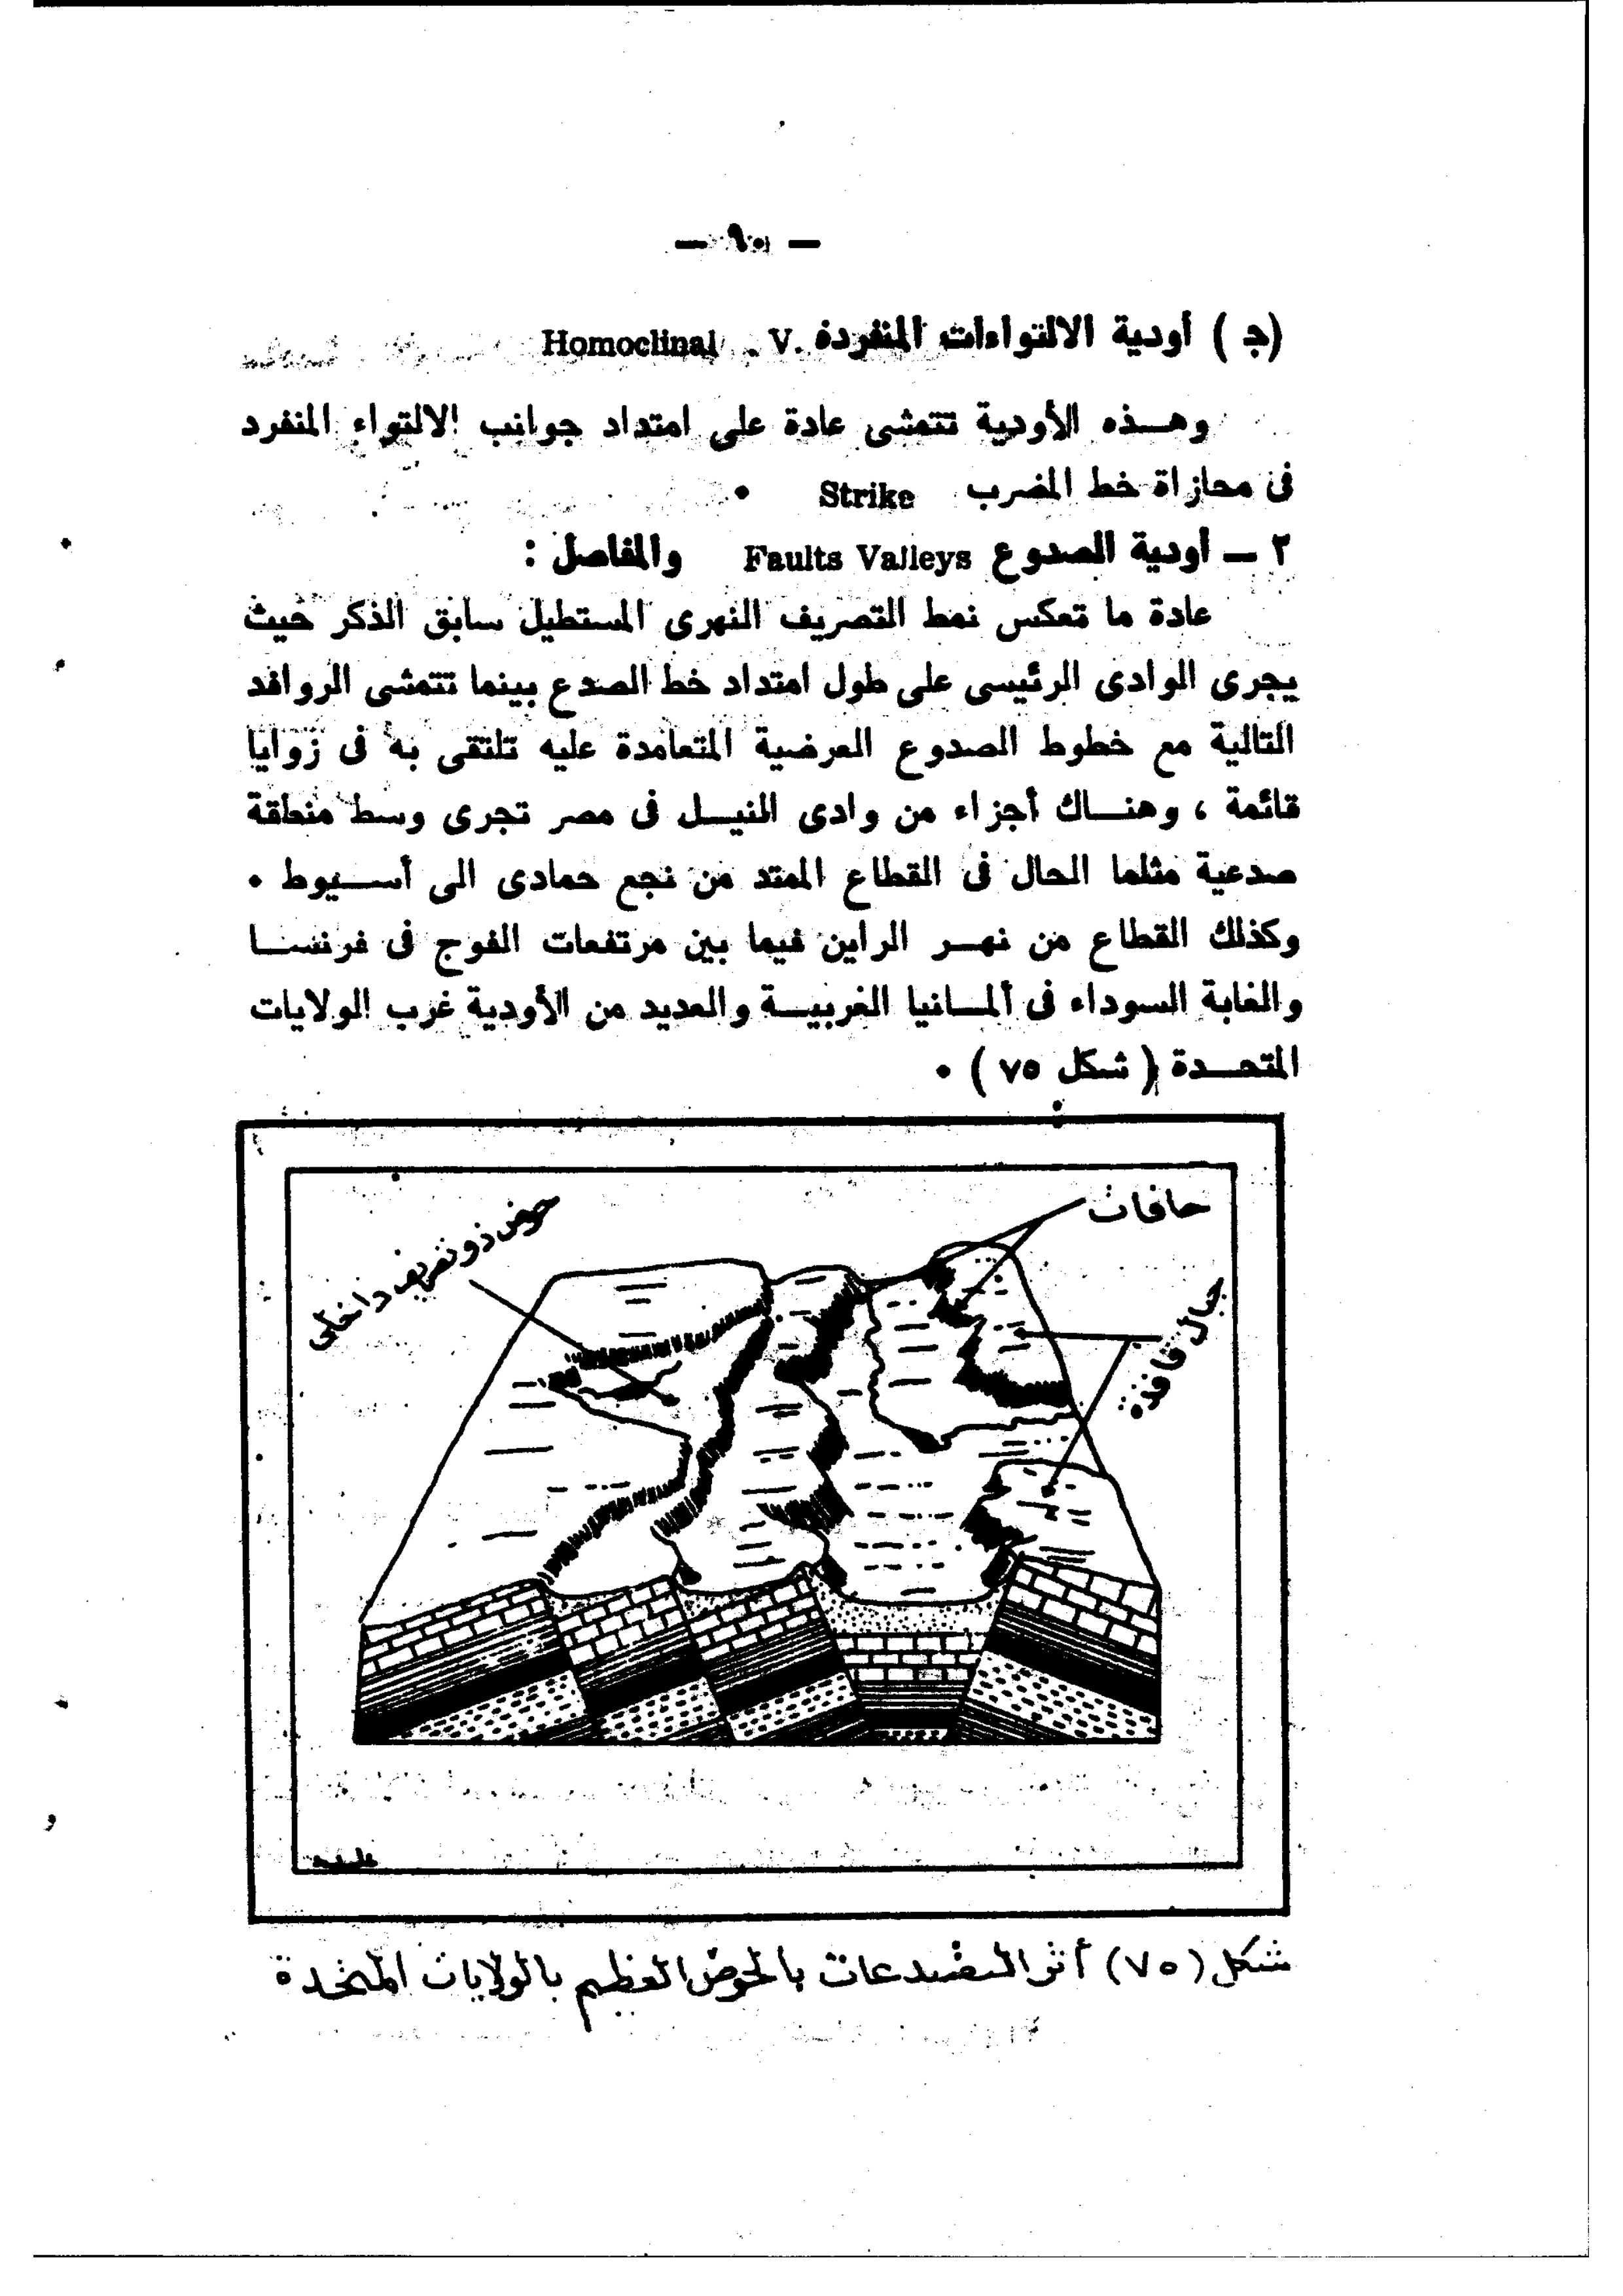 — ٩٠ —
(ج) أودية الالتواءات المنفردة Homoclinal . V.
وهـــذه الأودية تتمشى عادة على امتداد جوانب الالتواء المنفرد
فى محازاة خط المضرب Strike •
٢ — أودية الصدوع Faults Valleys والمفاصل :
عادة ما تعكس نمط التصريف النهرى المستطيل سابق الذكر حيث
يجرى الوادى الرئيسى على طول امتداد خط الصدع بينما تتمشى الروافد
التالية مع خطوط الصدوع العرضية المتعامدة عليه تلتقى به فى زوايا
قائمة ، وهنـــاك أجزاء من وادى النيـــل فى مصر تجرى وسط منطقة
صدعية مثلما الحال فى القطاع الممتد من نجع حمادى الى أســـيوط •
وكذلك القطاع من نهـــر الراين فيما بين مرتفعات الفوج فى فرنســـا
والغابة السوداء فى ألمـــانيا الغربيـــة والعديد من الأودية غرب الولايات
المتحـــدة ( شكل ٧٥ ) •
حافات
حوض ذو تصريف داخلى
جبال قافذة
شكل (٧٥) أثر التصدعات بالحوض العظيم بالولايات المتحدة